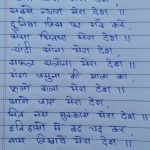 सबसे न्यारा मेरा देश ।
दुनिया जिस पर गर्व करे,
ऐसा सितारा मेरा देश ॥
चांदी सोना मेरा देश,
सफल सलोना मेरा देश ॥
गंगा जमुना की माला का,
फूलों वाला मेरा देश ॥
आगे जाए मेरा देश,
नित नए मुस्काए मेरा देश ॥
इतिहासों में बढ़ चढ़ कर,
नाम लिखाये मेरा देश ॥